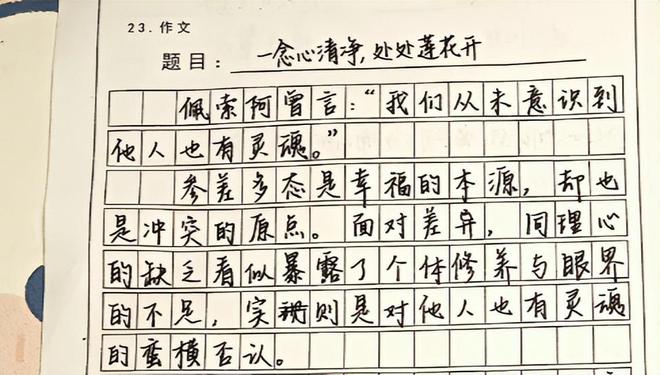 23.作文
题目：一念心清净，处处莲花开
佩索阿曾言：“我们从未意识到
他人也有灵魂。”
参差多态是幸福的本源，却也
是冲突的原点。面对差异，同理心
的缺乏看似暴露了个体修养与眼界
的不足，实则是对他人也有灵魂
的蛮横否认。